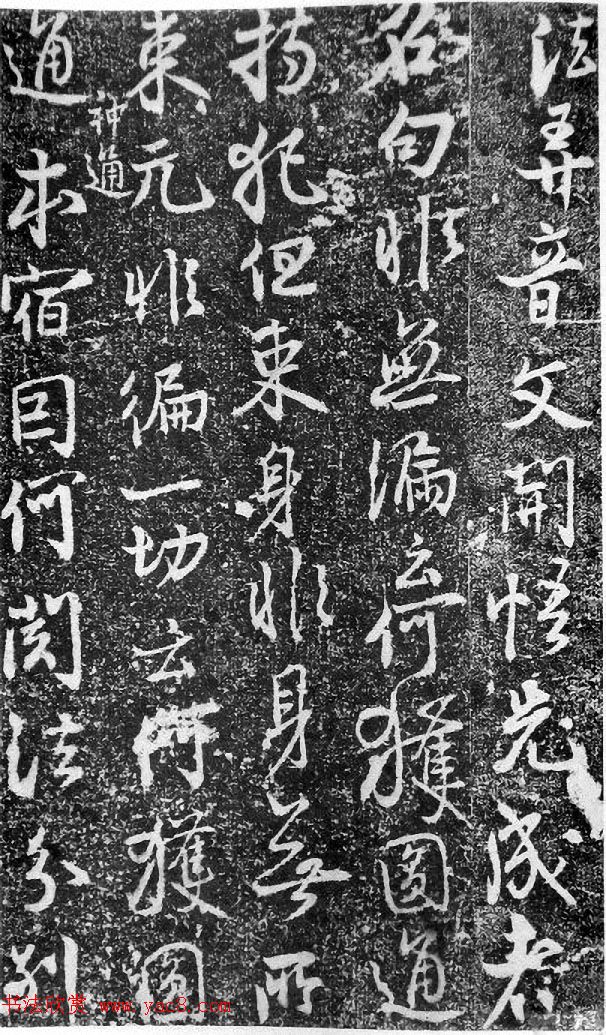 法弄音文開悟先成者
名句非無漏云何獲圓通
持犯但束身非身無所
束元非徧一切云何獲圓
通神通本宿因何關法分別
书法欣赏 www.yac8.com